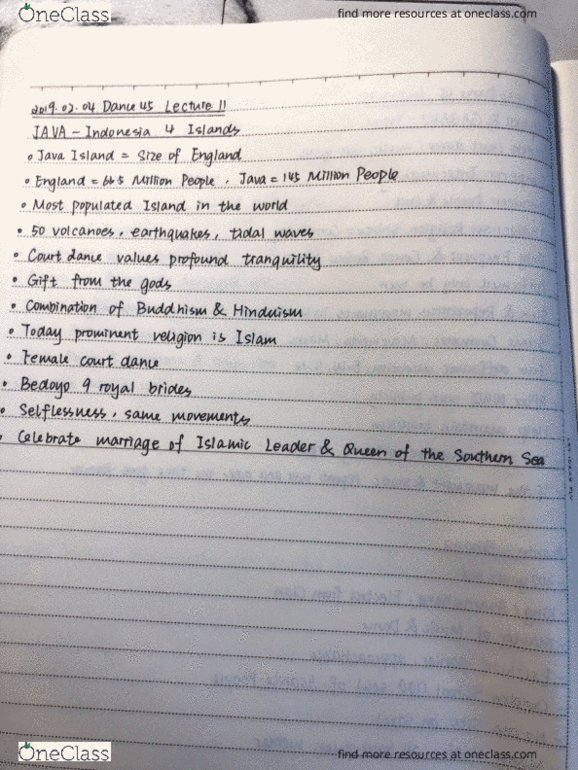 OneClass
find more resources at oneclass.com
2019.02.04 Dance 45 Lecture 11
JAVA - Indonesia 4 Islands
• Java Island = Size of England
• England = 66.5 Million People, Java = 145 Million People
• Most populated Island in the world
• 50 volcanoes, earthquakes, tidal waves
• Court dance values profound tranquility
• Gift from the gods
• Combination of Buddhism & Hinduism
• Today prominent religion is Islam
• Female court dance
• Bedoyo 9 royal brides
• Selflessness, same movements
• Celebrate marriage of Islamic Leader & Queen of the Southern Sea
OneClass
find more resources at oneclass.com